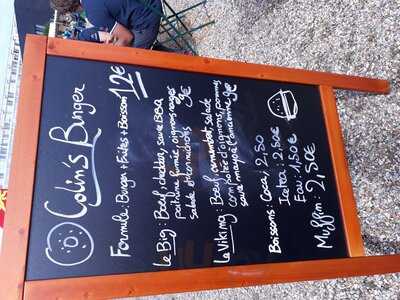 Colin's Burger
Formule: Burger + Frites + Boisson 12€
Le Big: Boeuf, cheddar, sauce BBQ
poitrine fumée, oignons rouges
salade et cornichons 9€
Le Viking: Boeuf, camembert, salade
confiotée d'oignons, pommes
sauce mayo à l'ancienne 9€
Boissons: Coca: 2,50
Icetea: 2,50€
Eau: 1,50€
Muffin: 2,50€